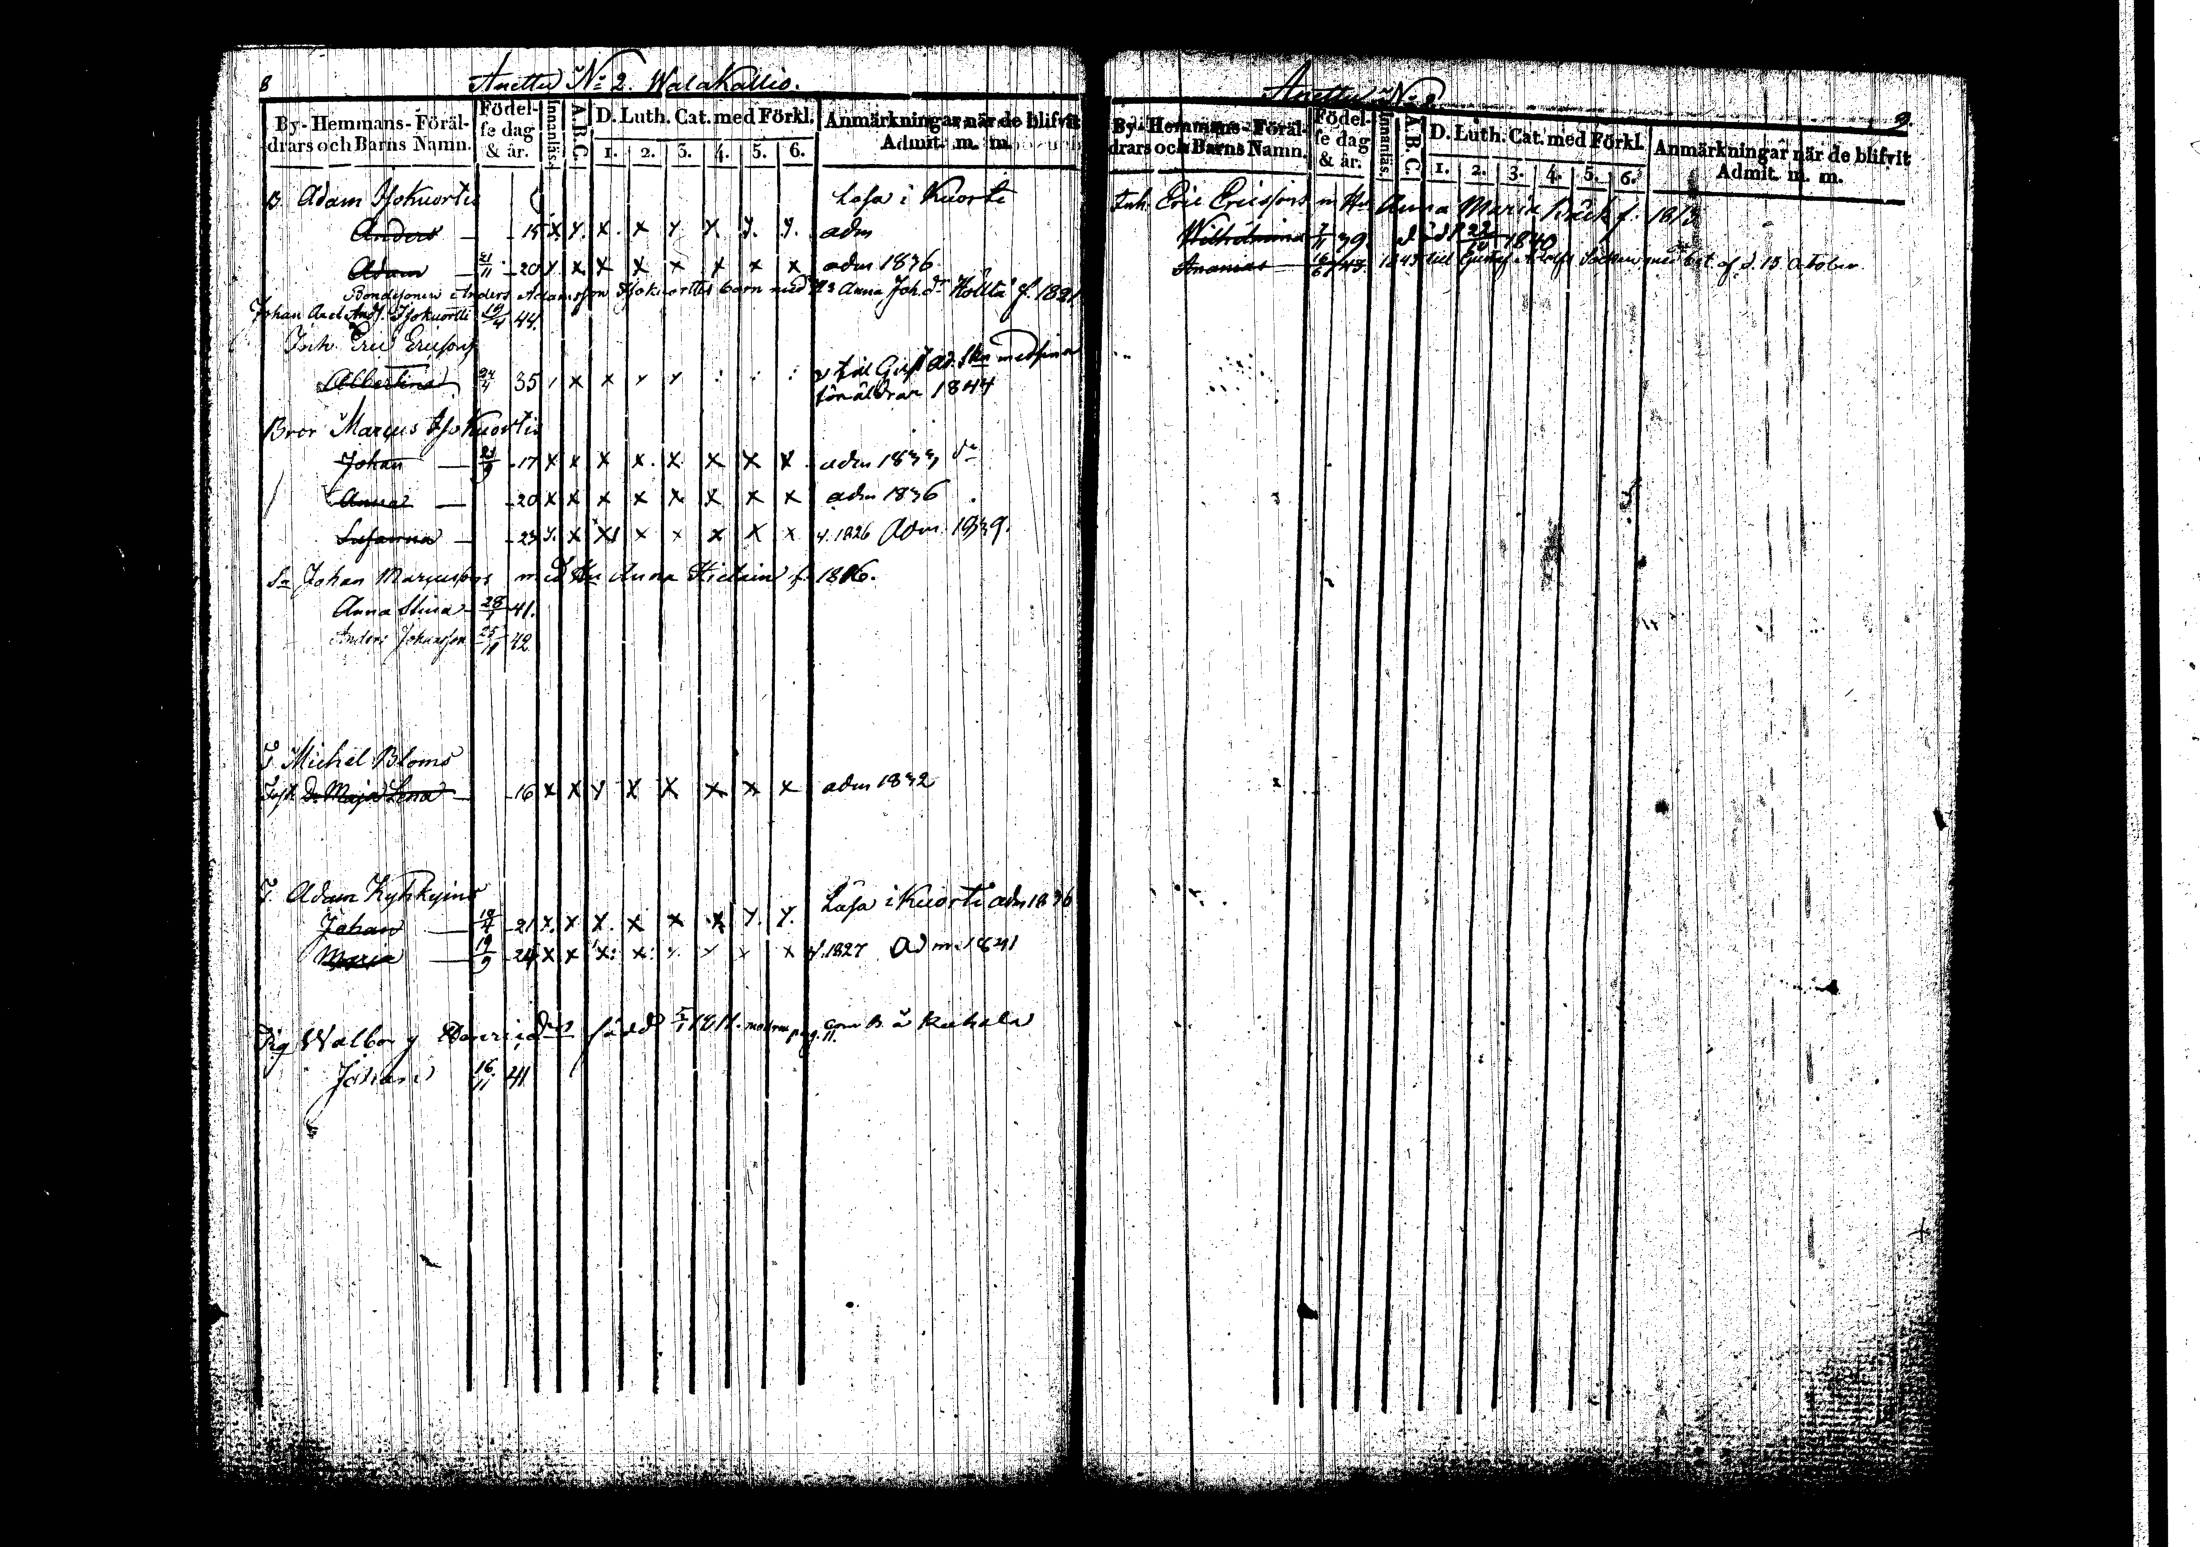 8
Anettu No 2. Walakallio.
By- Hemmans- Föräl-
drars och Barns Namn.
Födel-
se dag
& år.
Innanläs.
A.B.C.
D. Luth. Cat. med Förkl.
1. 2. 3. 4. 5. 6.
Anmärkningar når de blifvit
Admit. m. m.
B. Adam Isokuortis Läsa i Kuorti
Anders — - 15 x. y. x. x y y. y. y. adm
Adam — 21/11 - 20 y. x x x x x x x adm 1836
Bondesonen Anders Adamsson Isokuorttis barn med Hu Anna Joh. dr f. 1821
Johan Axel And. Isokuortti 19/4 44.
Inh. Eric Ericsons
Albertina 24/4 35 till Gust. Ad. Skn med sina
föräldrar 1844
Bror Marcus Isokuortis
Johan — 21/9 - 17 x x x x. x. x x x. adm 1833
Anna — - 20 x x x x x x x x adm 1836
Susanna — - 23 y. x x x x x x x 1826 Adm. 1839.
Sn Johan Marcusson med Hu Anna f. 1816.
Anna Stina 28/1 41.
Anders Johansson 25/11 42
I. Michel Bloms
Dr Maja Lena — - 16 x x y x x x x x adm 1832
T. Adam Kyhkyins Läsa i Kuorti adm 1836
Johan — 19/4 - 21 x. x x. x x x y. y.
Maria — 19/9 - 24 x x x: x: y. y y x 1827 Adm. 1841
Pig Walborg född 1811. pag. 11.
Johan 16/11 41
Anettu No 2
9.
By- Hemmans- Föräl-
drars och Barns Namn.
Födel-
se dag
& år.
Innanläs.
A.B.C.
D. Luth. Cat. med Förkl.
1. 2. 3. 4. 5. 6.
Anmärkningar når de blifvit
Admit. m. m.
Inh. Eric Ericssons m Hu Anna Maria Bäck f. 1813
Wilhelmina 7/11 39. död 22/10 1840
Ananias 16/6 43. 1843 till Gustaf Adolfs Socken med bet. af d. 15 October